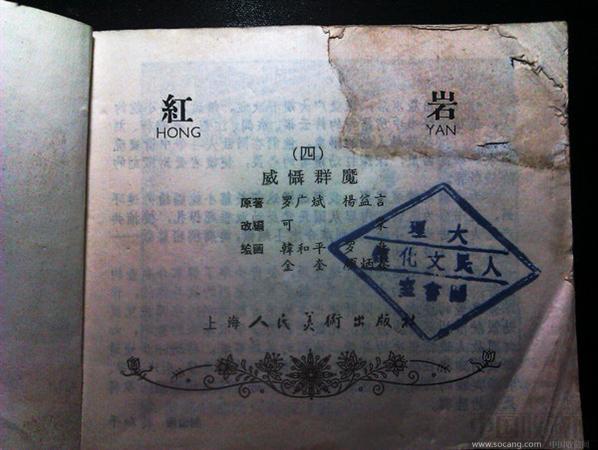 紅 岩
HONG YAN
(四)
威懾群魔
原著 罗广斌 楊益言
改編 可
绘画 韓和平 罗
金奎 顾炳
上海人民美術出版社
大理
人民文化
圖書室
www.socang.com 中国收藏网